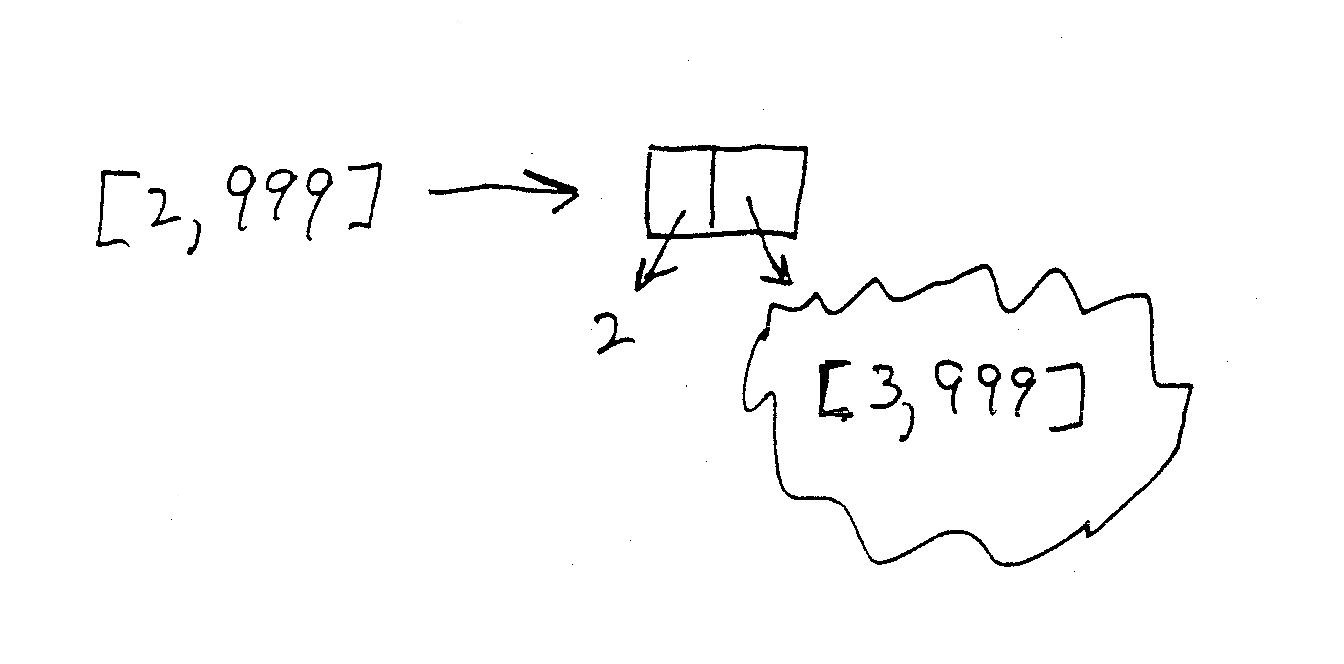 [2, 999]
2
[3, 999]